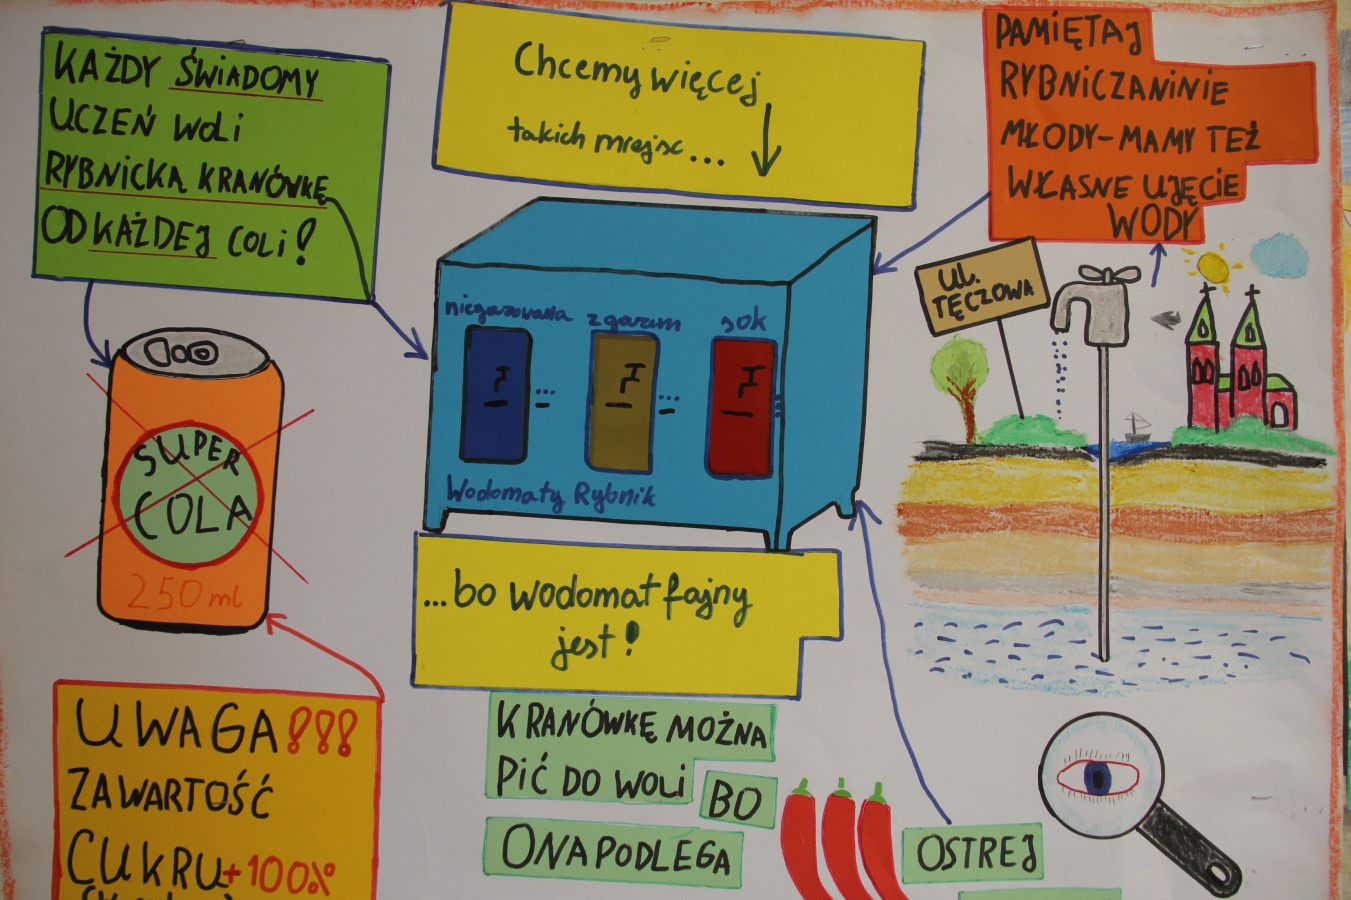 KAŻDY ŚWIADOMY
UCZEŃ WOLI
RYBNICKĄ KRANÓWKĘ
OD KAŻDEJ COLI!
Chcemy więcej
takich miejsc...
PAMIĘTAJ
RYBNICZANINIE
MŁODY-MAMY TEŻ
WŁASNE UJĘCIE
WODY
UL.
TĘCZOWA
niegazowana
z gazem
sok
Wodomaty Rybnik
SUPER
COLA
250 ml
...bo wodomat fajny
jest!
UWAGA!!!
ZAWARTOŚĆ
CUKRU +100%
KRANÓWKĘ MOŻNA
PIĆ DO WOLI
BO
ONA PODLEGA
OSTREJ